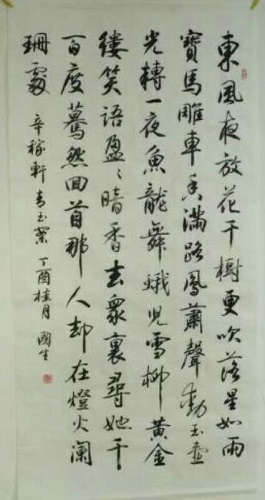 東風夜放花千樹更吹落星如雨
寶馬雕車香滿路鳳蕭聲動玉壺
光轉一夜魚龍舞蛾兒雪柳黃金
縷笑語盈〻暗香去眾裏尋她千
百度驀然回首那人却在燈火闌
珊處
辛稼軒 青玉案 丁酉桂月 國生